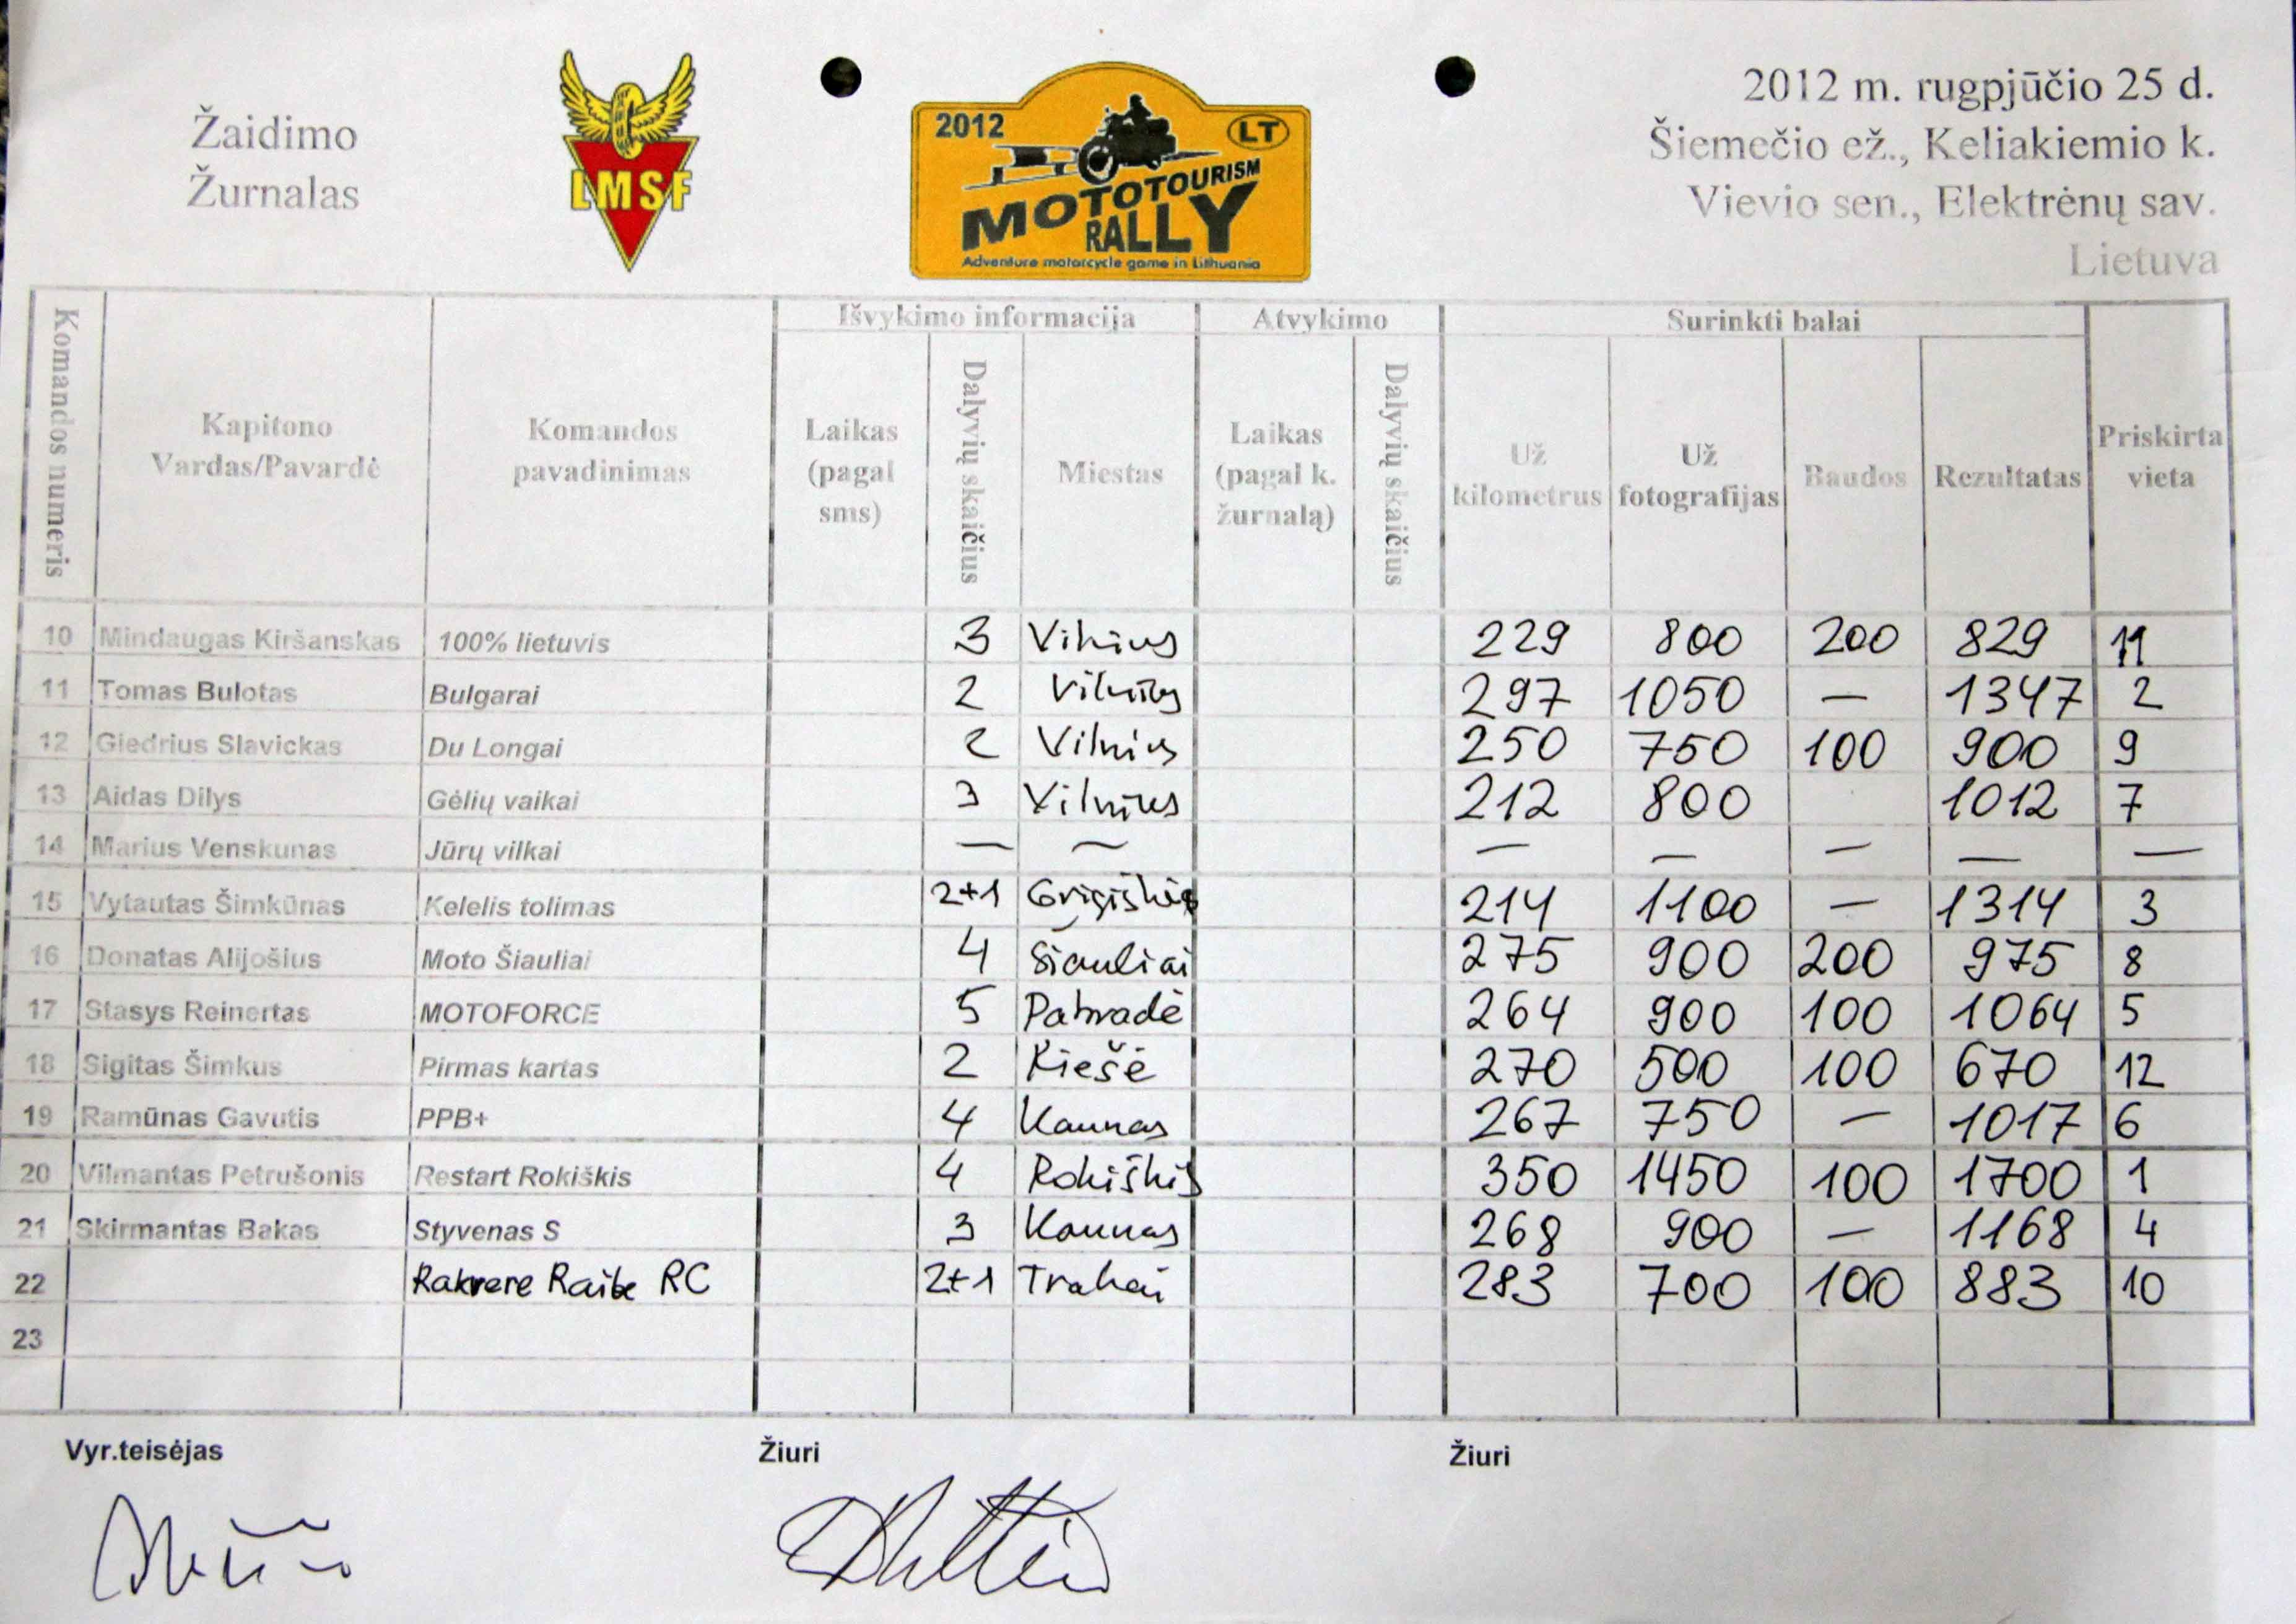 Žaidimo
Žurnalas
LMSF
2012
LT
MOTOTOURISM
RALLY
Adventure motorcycle game in Lithuania
2012 m. rugpjūčio 25 d.
Šiemečio ež., Keliakiemio k.
Vievio sen., Elektrėnų sav.
Lietuva
Komandos numeris
Kapitono
Vardas/Pavardė
Komandos
pavadinimas
Išvykimo informacija
Laikas
(pagal
sms)
Dalyvių skaičius
Miestas
Atvykimo
Laikas
(pagal k.
žurnalą)
Dalyvių skaičius
Surinkti balai
Už
kilometrus
Už
fotografijas
Baudos
Rezultatas
Priskirta
vieta
10 Mindaugas Kiršanskas 100% lietuvis 3 Vilnius 229 800 200 829 11
11 Tomas Bulotas Bulgarai 2 Vilnius 297 1050 — 1347 2
12 Giedrius Slavickas Du Longai 2 Vilnius 250 750 100 900 9
13 Aidas Dilys Gėlių vaikai 3 Vilnius 212 800 1012 7
14 Marius Venskunas Jūrų vilkai — — — — — — —
15 Vytautas Šimkūnas Kelelis tolimas 2+1 214 1100 — 1314 3
16 Donatas Alijošius Moto Šiauliai 4 Šiauliai 275 900 200 975 8
17 Stasys Reinertas MOTOFORCE 5 Pabradė 264 900 100 1064 5
18 Sigitas Šimkus Pirmas kartas 2 Riešė 270 500 100 670 12
19 Ramūnas Gavutis PPB+ 4 Kaunas 267 750 — 1017 6
20 Vilmantas Petrušonis Restart Rokiškis 4 Rokiškis 350 1450 100 1700 1
21 Skirmantas Bakas Styvenas S 3 Kaunas 268 900 — 1168 4
22 Rakvere Raibe RC 2+1 Trakai 283 700 100 883 10
23
Vyr.teisėjas Žiuri Žiuri